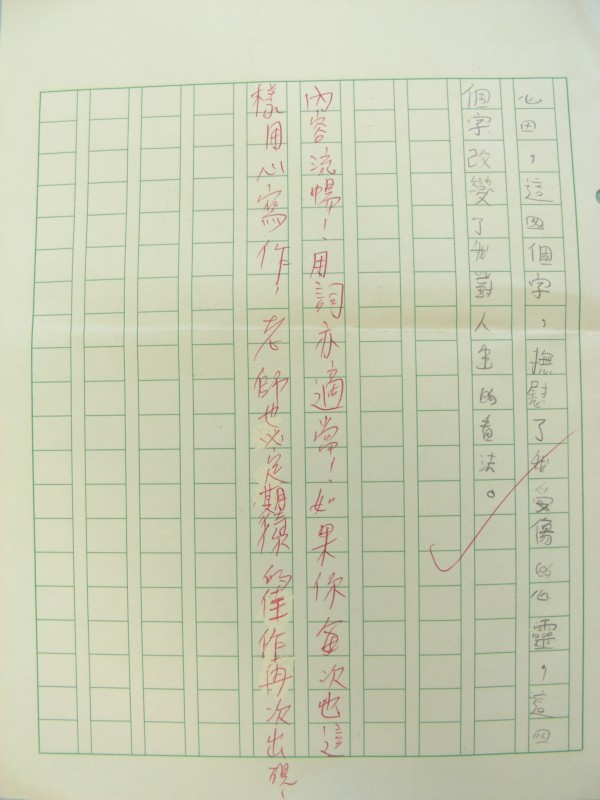 心田，這四個字，撫慰了我受傷的心靈，這四
個字改變了我對人生的看法。
內容流暢！用詞亦適當！如果你每次也這
樣用心寫作，老師也必定期待你的佳作再次出現！